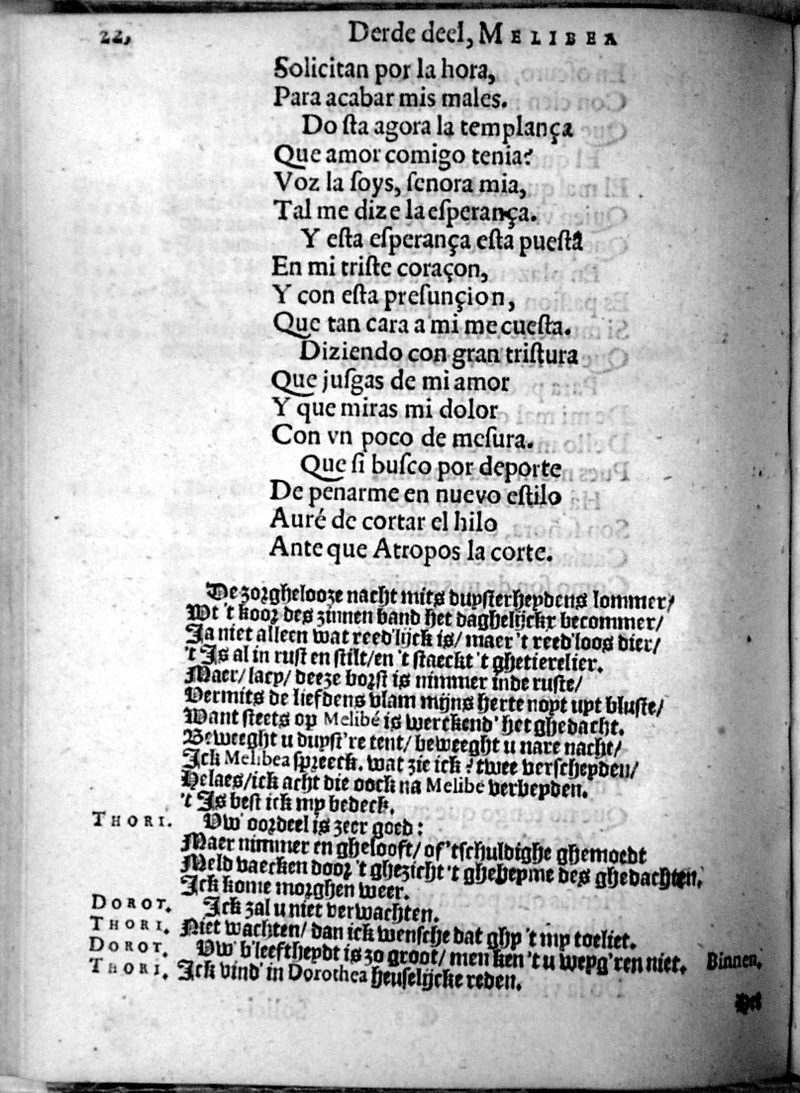 22, Derde deel, MELIBEA
Solicitan por la hora,
Para acabar mis males.
Do ſta agora la templança
Que amor comigo tenia?
Voz la ſoys, ſenora mia,
Tal me dize la eſperança.
Y eſta eſperança eſta pueſta
En mi triſte coraçon,
Y con eſta preſunçion,
Que tan cara a mi me cueſta.
Diziendo con gran triſtura
Que juſgas de mi amor
Y que miras mi dolor
Con vn poco de meſura.
Que ſi buſco por deporte
De penarme en nuevo eſtilo
Auré de cortar el hilo
Ante que Atropos la corte.
De zorghelooze nacht mits duyſterheydens lommer/
Wt 't koor des zinnen band het daghelijckx becommer/
Ja niet alleen wat reed'lijck is/ maer 't reed'loos dier/
't Is al in ruſt en ſtilt/ en 't ſtaeckt 't ghetierelier.
Maer/ lacy/ deeze borſt is nimmer inde ruſte/
Vermits de liefdens vlam mijns herte noyt uyt bluſte/
Want ſteets op Melibé is werckend' het ghedacht.
Beweeght u duyſt're tent/ beweeght u nare nacht/
Ick Melibea ſpreeck. wat zie ick? twee verſcheyden/
Helaes/ ick acht die oock na Melibé verbeyden.
't Is beſt ick my bedeck.
THORI. Uw' oordeel is zeer goed:
Maer nimmer en ghelooft/ of 'tſchuldighe ghemoedt
Meld vaecken door 't ghezicht 't gheheyme des ghedachten.
Ick kome morghen weer.
DOROT. Ick zal u niet verwachten.
THORI. Niet wachten/ dan ick wenſche dat ghy 't my toeliet.
DOROT. Uw' b'leeftheydt is zo groot/ men ken 't u weyg'ren niet. Binnen.
THORI. Ick vind' in Dorothea heuſelijcke reden.
Het